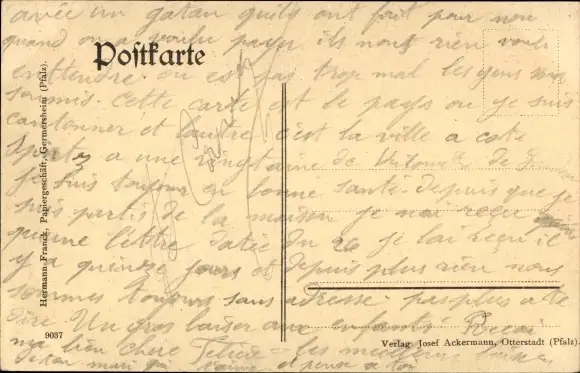 avec un gatau quils ont fait pour nous
quand on a voulu payer ils nont rien voulu
Postkarte
enttendre on est pas trop mal les gens
soumis. Cette carte est le pays ou je suis
cantonner et lautre c'est la ville a coté
a une vingtaine de
je suis toujour en bonne santé. depuis que je
suis partis de la maison je nai reçu
qu'une lettre datée du 20 je lai reçu il
y a quinze jours et depuis plus rien nous
sommes toujours sans adresse. pas plus a te
dire Un gros baiser aux enfants Reçoi
ma bien chere les meilleurs baisers
de ton mari qui t'aime et pense a toi
Hermann Franck, Papiergeschäft, Germersheim (Pfalz).
9037
Verlag Josef Ackermann, Otterstadt (Pfalz)